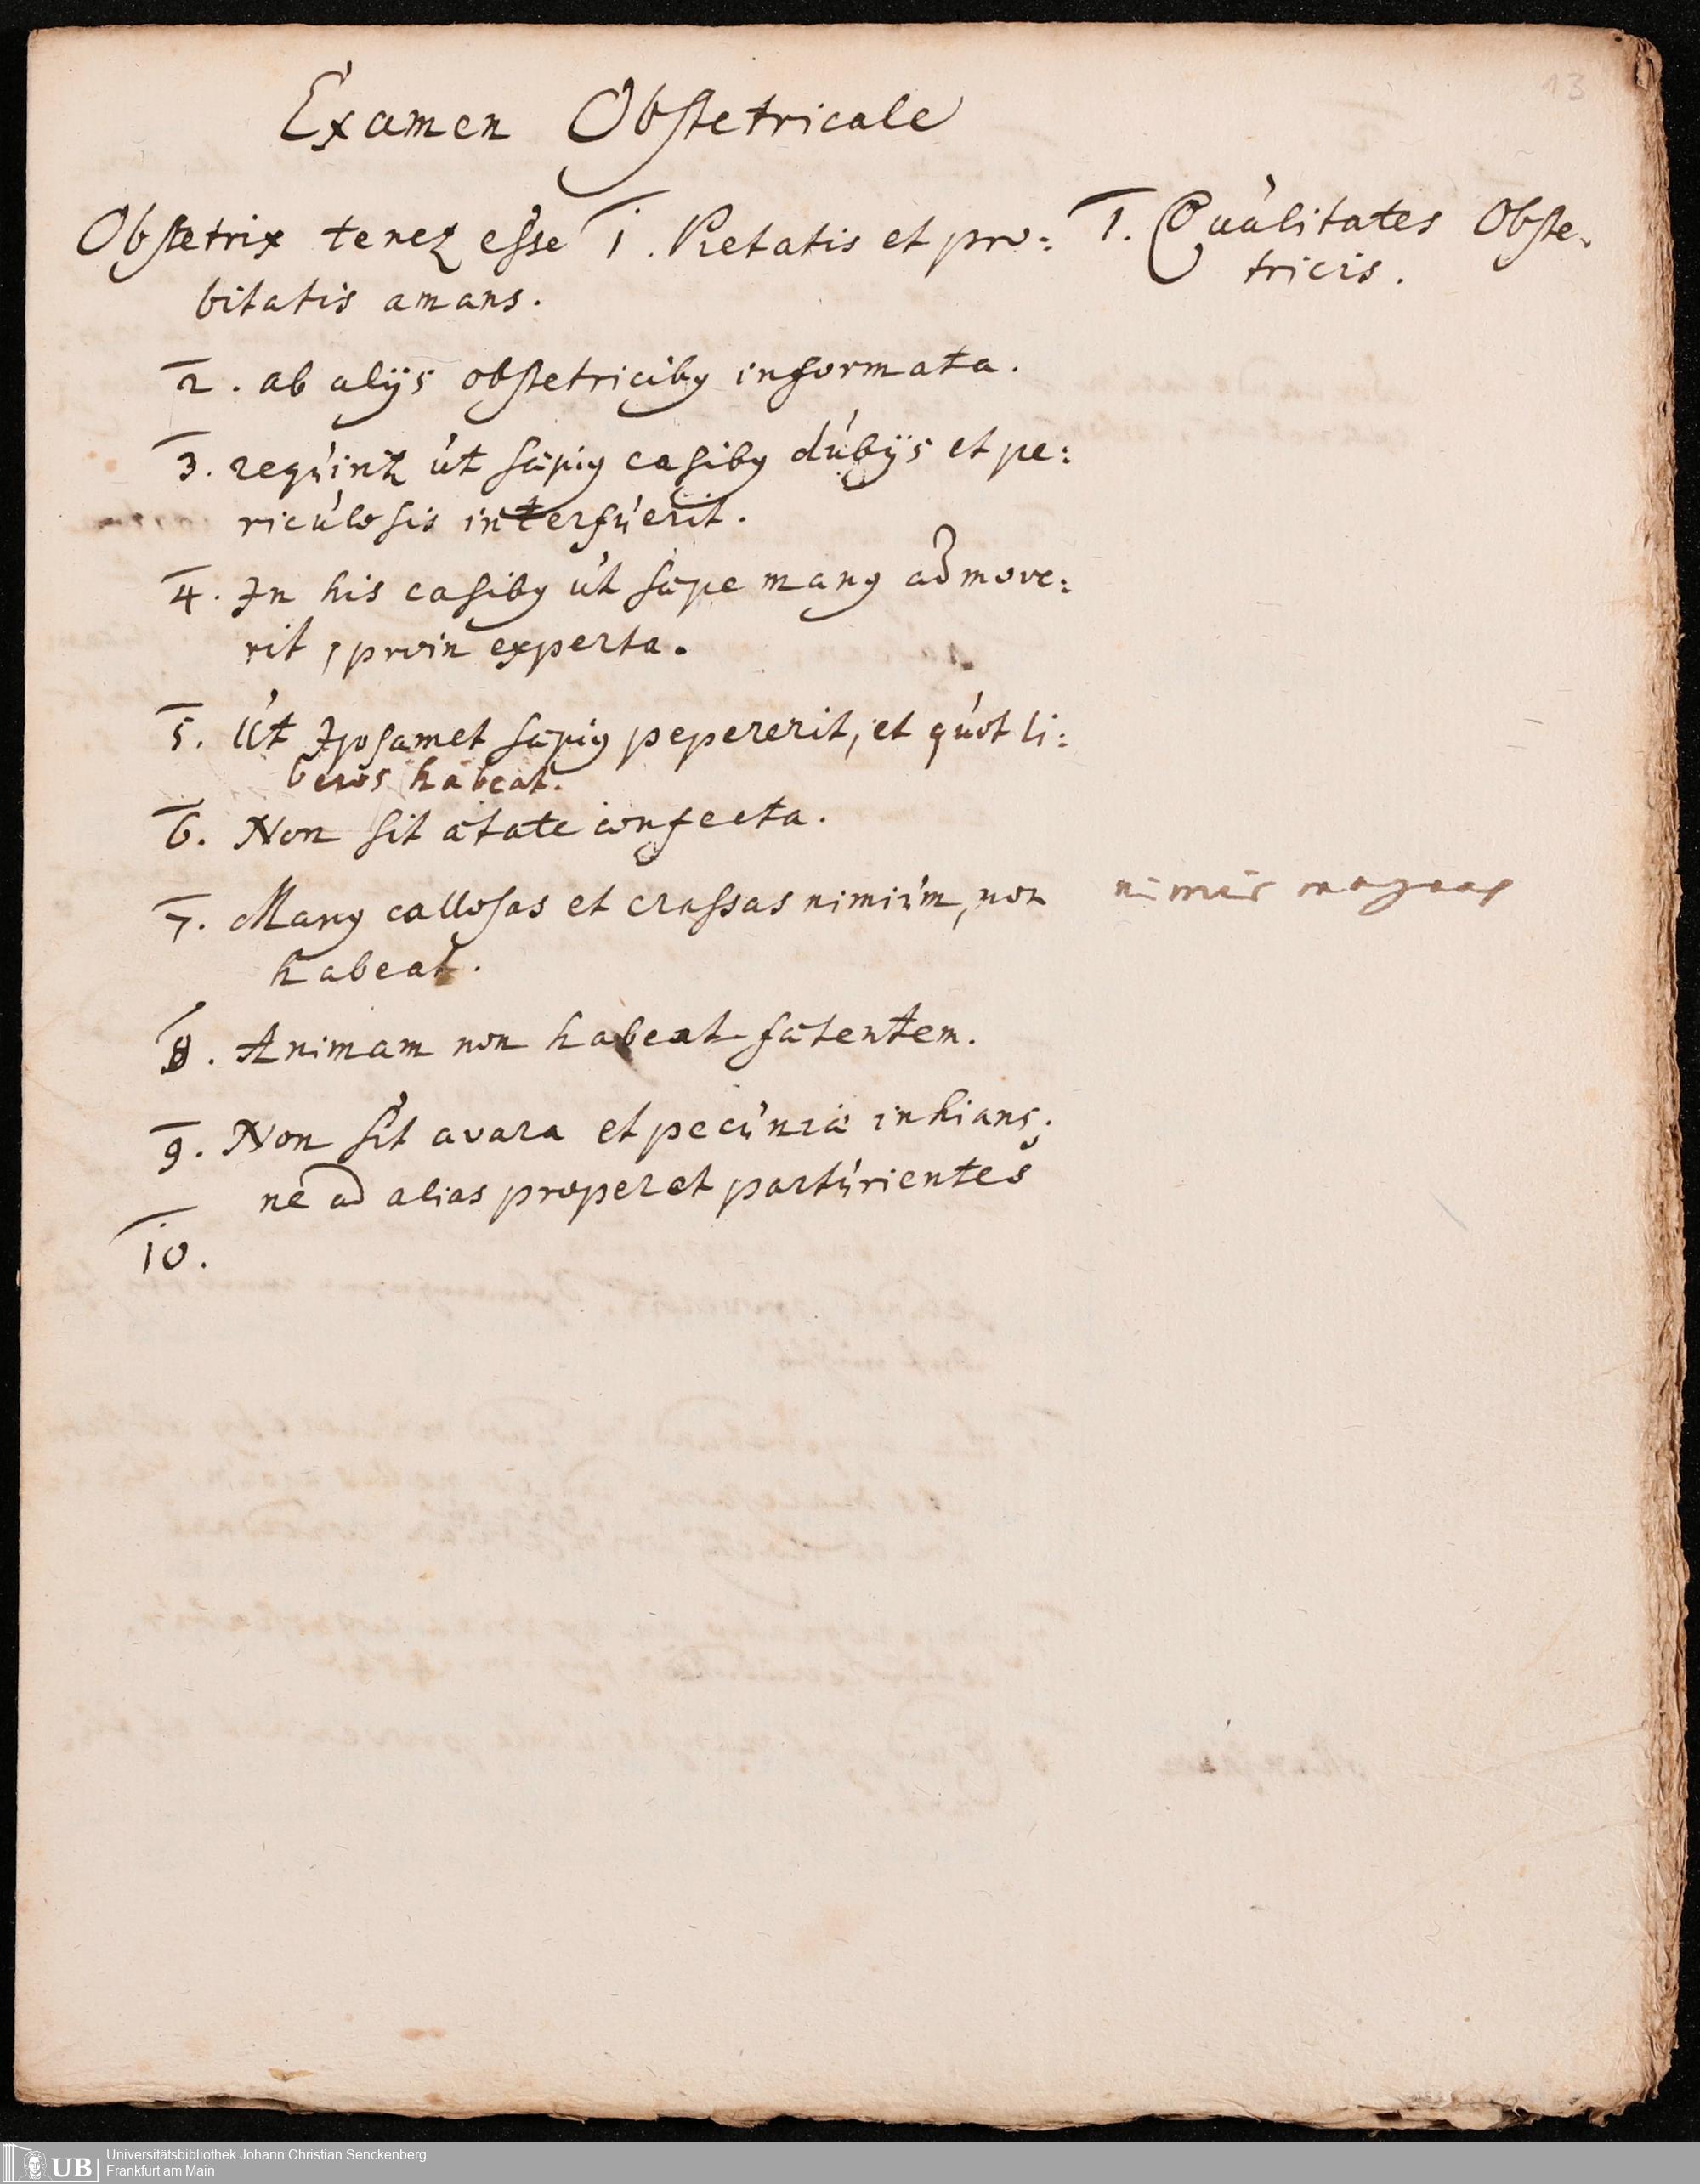 13
Examen Obstetricale
Obstetrix tenetꝛ esse 1. Pietatis et pro:
bitatis amans.
1. Qualitates Obste-
tricis.
2. ab alijs obstetricibꝰ informata.
3. requiritꝛ ut sæpiꝰ casibꝰ dubijs et pe:
riculosis interfuerit.
4. In his casibꝰ ut sæpe manꝰ admove:
rit, experta.
5. Ut Ipsamet sæpiꝰ pepererit, et quot li:
beros habeat.
6. Non sit ætate confecta.
7. Manꝰ callosas et crassas nimium, non
habeat.
nimis magnas
8. Animam non habeat fætentem.
9. Non sit avara et pecuniæ inhians;
ne ad alias properet parturientes
10.
UB Universitätsbibliothek Johann Christian Senckenberg
Frankfurt am Main